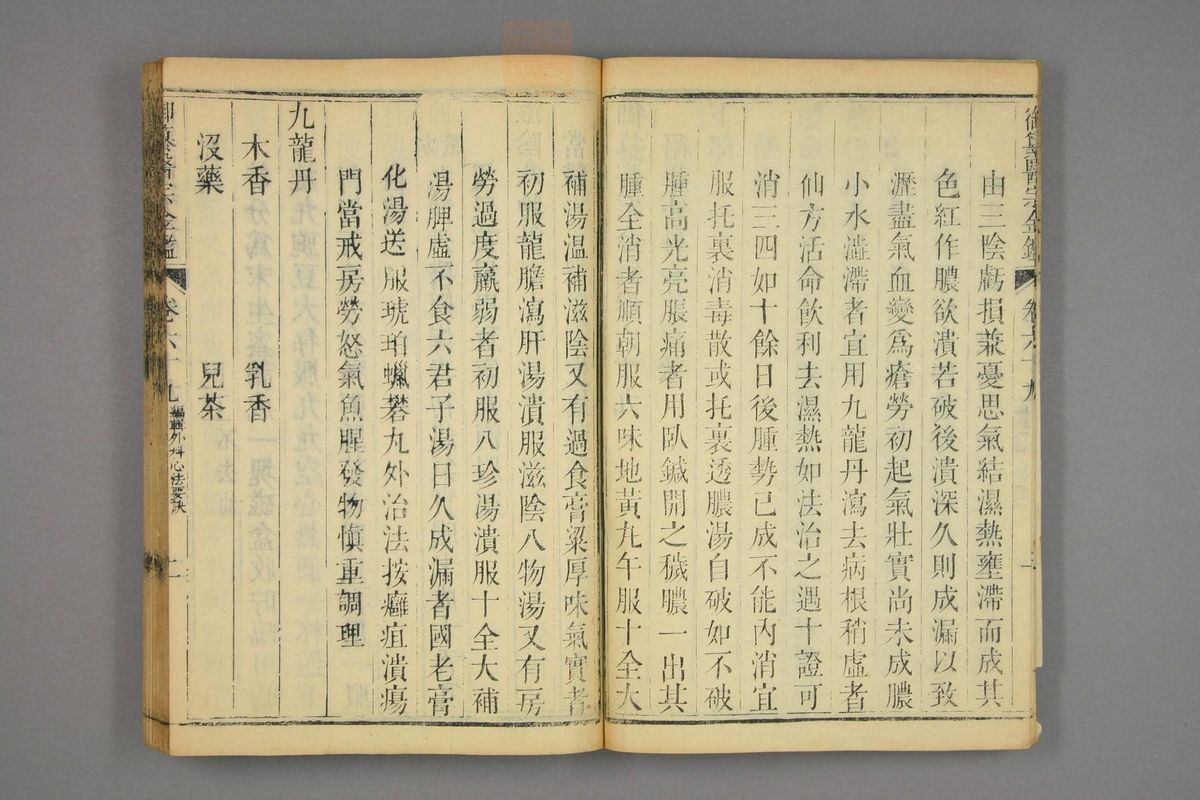 御纂醫宗金鑑 卷六十九
由三陰虧損兼憂思氣結濕熱壅滯而成其
色紅作膿欲潰若破後潰深久則成漏以致
瀝盡氣血變爲瘡勞初起氣壯實尚未成膿
小水澁滯者宜用九龍丹瀉去病根稍虛者
仙方活命飲利去濕熱如法治之遇十證可
消三四如十餘日後腫勢已成不能內消宜
服托裏消毒散或托裏透膿湯自破如不破
腫高光亮脹痛者用臥鍼開之穢膿一出其
腫全消者順朝服六味地黃丸午服十全大
補湯溫補滋陰又有過食膏粱厚味氣實者
初服龍膽瀉肝湯潰服滋陰八物湯又有房
勞過度羸弱者初服八珍湯潰服十全大補
湯脾虛不食六君子湯日久成漏者國老膏
化湯送服琥珀蠟礬丸外治法按癰疽潰瘍
門當戒房勞怒氣魚腥發物愼重調理
九龍丹
木香 乳香
沒藥 兒茶
御纂醫宗金鑑 卷六十九 編輯外科心法要訣 二